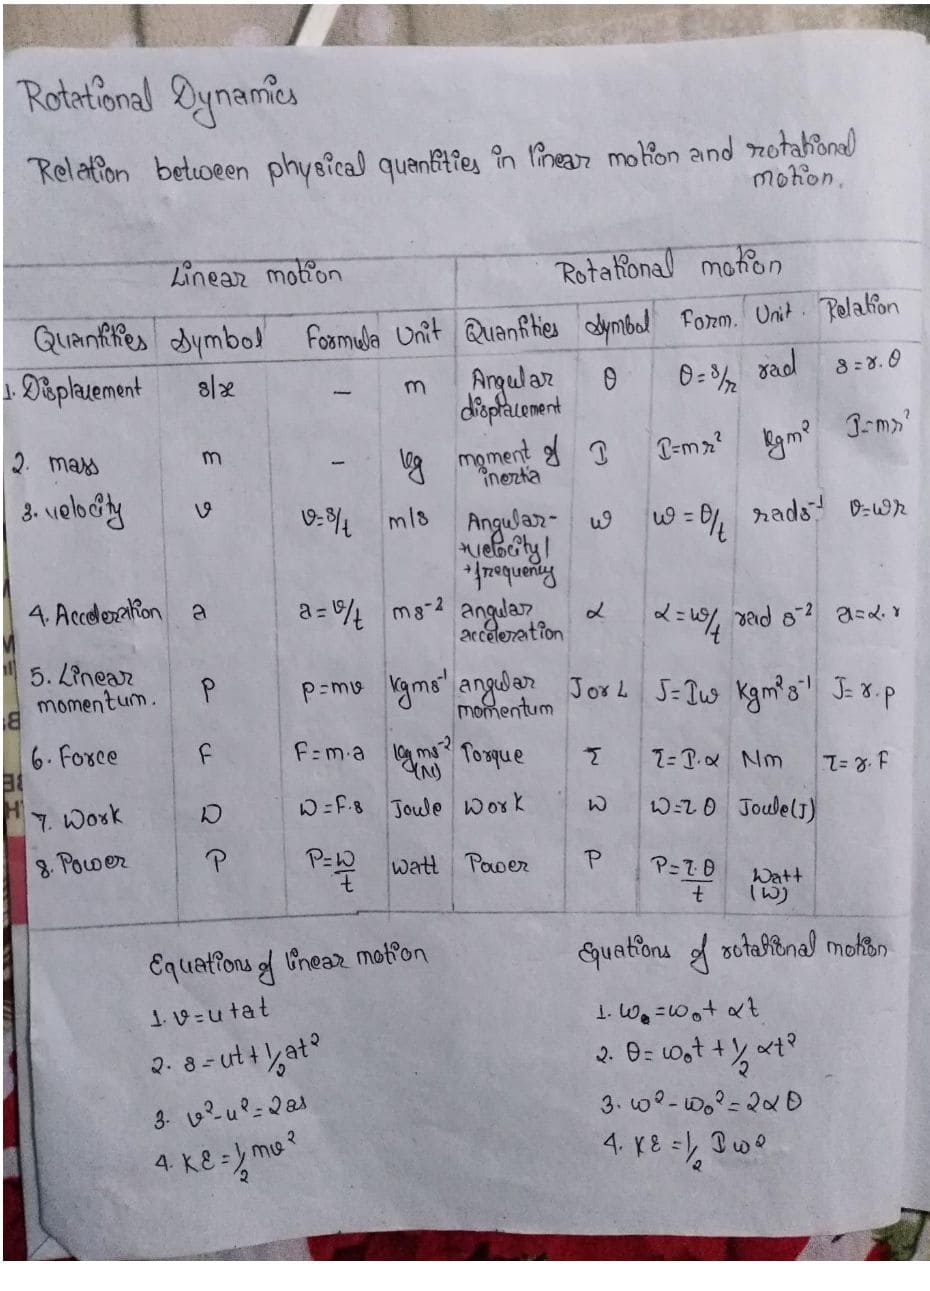 Rotational Dynamics
Relation between physical quantities in linear motion and rotational
motion.
Linear motion Rotational motion
Quantities Symbol Formula Unit Quantities Symbol Form. Unit. Relation
1. Displacement s/x – m Angular displacement θ θ=s/r rad s=r.θ
2. mass m – kg moment of inertia I I=mr² kgm² I=mr²
3. velocity v v=s/t m/s Angular-velocity/frequency ω ω=θ/t rads⁻¹ v=ωr
4. Acceleration a a=v/t ms⁻² angular acceleration α α=ω/t rad s⁻² a=α.r
5. Linear momentum. P p=mv kgms⁻¹ angular momentum J or L J=Iω Kgm²s⁻¹ J=r.p
6. Force F F=m.a kgms⁻² (N) Torque τ τ=I.α Nm τ=r.F
7. Work W W=F.s Joule Work W W=τθ Joule(J)
8. Power P P=W/t Watt Power P P=τ.θ/t Watt (W)
Equations of linear motion Equations of rotational motion
1. v=u+at 1. ω=ω₀+αt
2. s=ut+½at² 2. θ=ω₀t+½αt²
3. v²-u²=2as 3. ω²-ω₀²=2αθ
4. KE=½mv² 4. KE=½Iω²